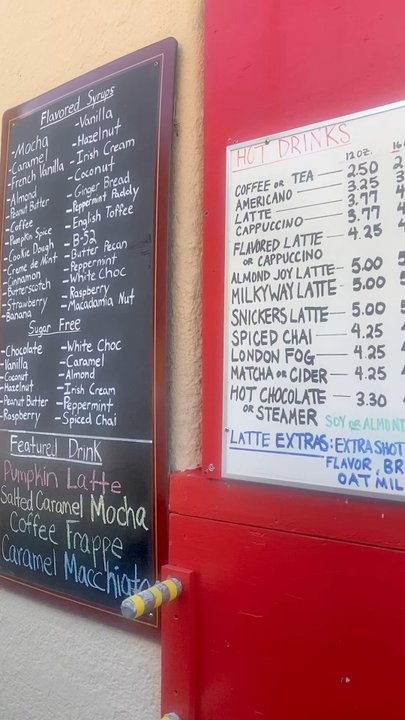 Flavored Syrups
-Mocha
-Caramel
-French Vanilla
-Almond
-Peanut Butter
-Coffee
-Pumpkin Spice
-Cookie Dough
-Creme de Mint
-Cinnamon
-Butterscotch
-Strawberry
-Banana
-Vanilla
-Hazelnut
-Irish Cream
-Coconut
-Ginger Bread
-Peppermint Paddy
-English Toffee
-B-52
-Butter Pecan
-Peppermint
-White Choc
-Raspberry
-Macadamia Nut
Sugar Free
-Chocolate
-Vanilla
-Coconut
-Hazelnut
-Peanut Butter
-Raspberry
-White Choc
-Caramel
-Almond
-Irish Cream
-Peppermint
-Spiced Chai
Featured Drink
Pumpkin Latte
Salted Caramel Mocha
Coffee Frappe
Caramel Macchiato
HOT DRINKS
12 OZ.
COFFEE OR TEA — 2.50
AMERICANO — 3.25
LATTE — 3.77
CAPPUCCINO — 3.77
FLAVORED LATTE 4.25
OR CAPPUCCINO
ALMOND JOY LATTE- 5.00
MILKYWAY LATTE- 5.00
SNICKERS LATTE- 5.00
SPICED CHAI — 4.25
LONDON FOG — 4.25
MATCHA OR CIDER- 4.25
HOT CHOCOLATE — 3.30
OR STEAMER
SOY OR ALMOND
LATTE EXTRAS: EXTRA SHOT
FLAVOR,